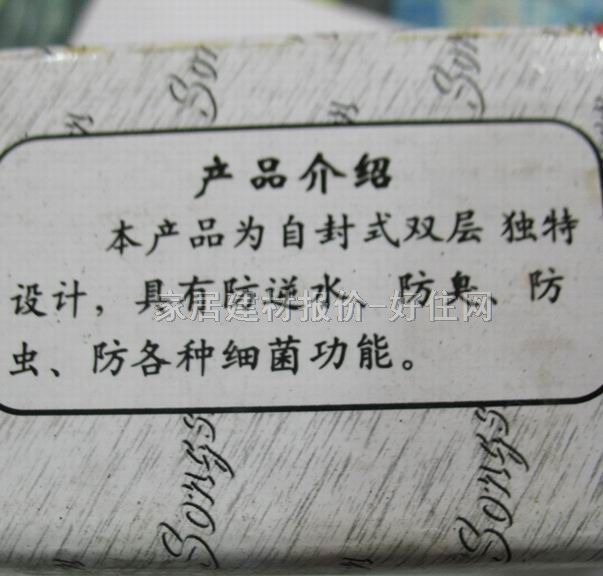 产品介绍
本产品为自封式双层 独特
设计，具有防逆水、防臭、防
虫、防各种细菌功能。
家居建材报价-好住网